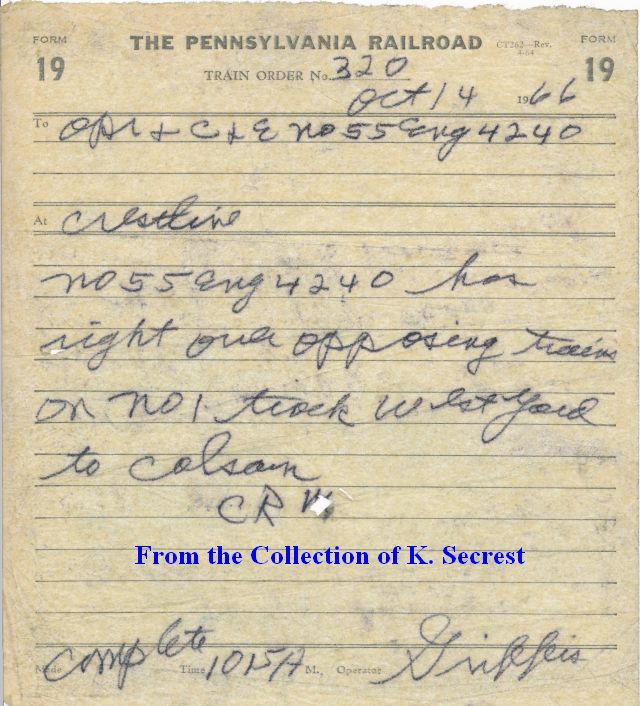 FORM 19 THE PENNSYLVANIA RAILROAD CT262—Rev. 4-64 FORM 19
TRAIN ORDER No. 320
Oct 14 1966
To Opr + C + E No 55 Eng 4240
At Crestline
No 55 Eng 4240 has
right over opposing trains
on No 1 track West Yard
to Colsan
CRW
From the Collection of K. Secrest
Made complete Time 1015 A M., Operator Griffis